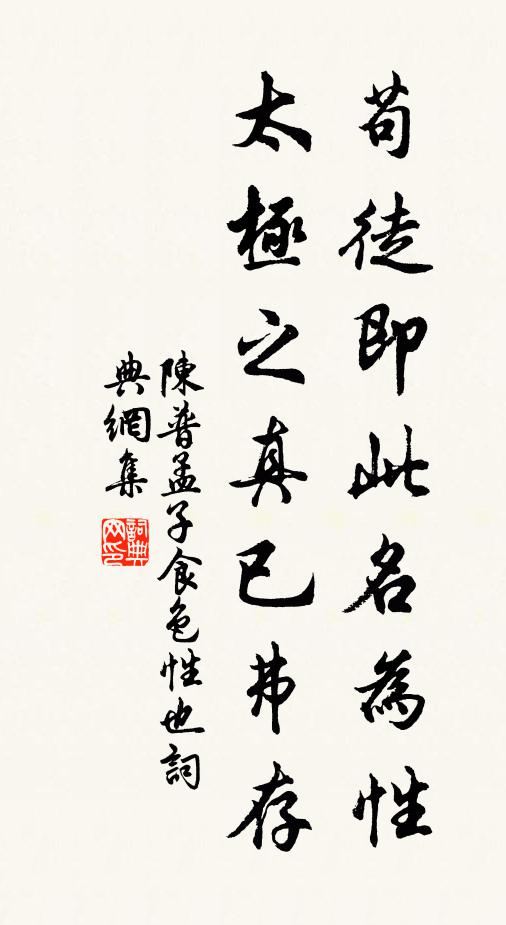 苟徒即此名為性
太極之真已弗存
陳普孟子食色性也詞
典網集
詞典網印